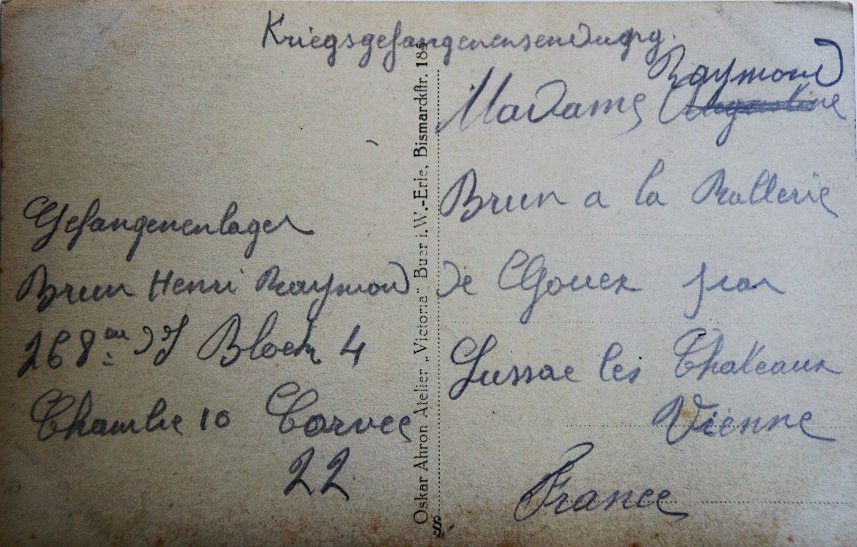 Kriegsgefangenensendung.
Gefangenenlager
Brun Henri Raymond
268 Block 4
Chambre 10 Corvee
22
Oskar Ahron Atelier „Victoria" Buer i. W.-Erle, Bismarckstr. 185
Raymond
Madame
Brun a la
de
Lussac les Chateaux
Vienne
France